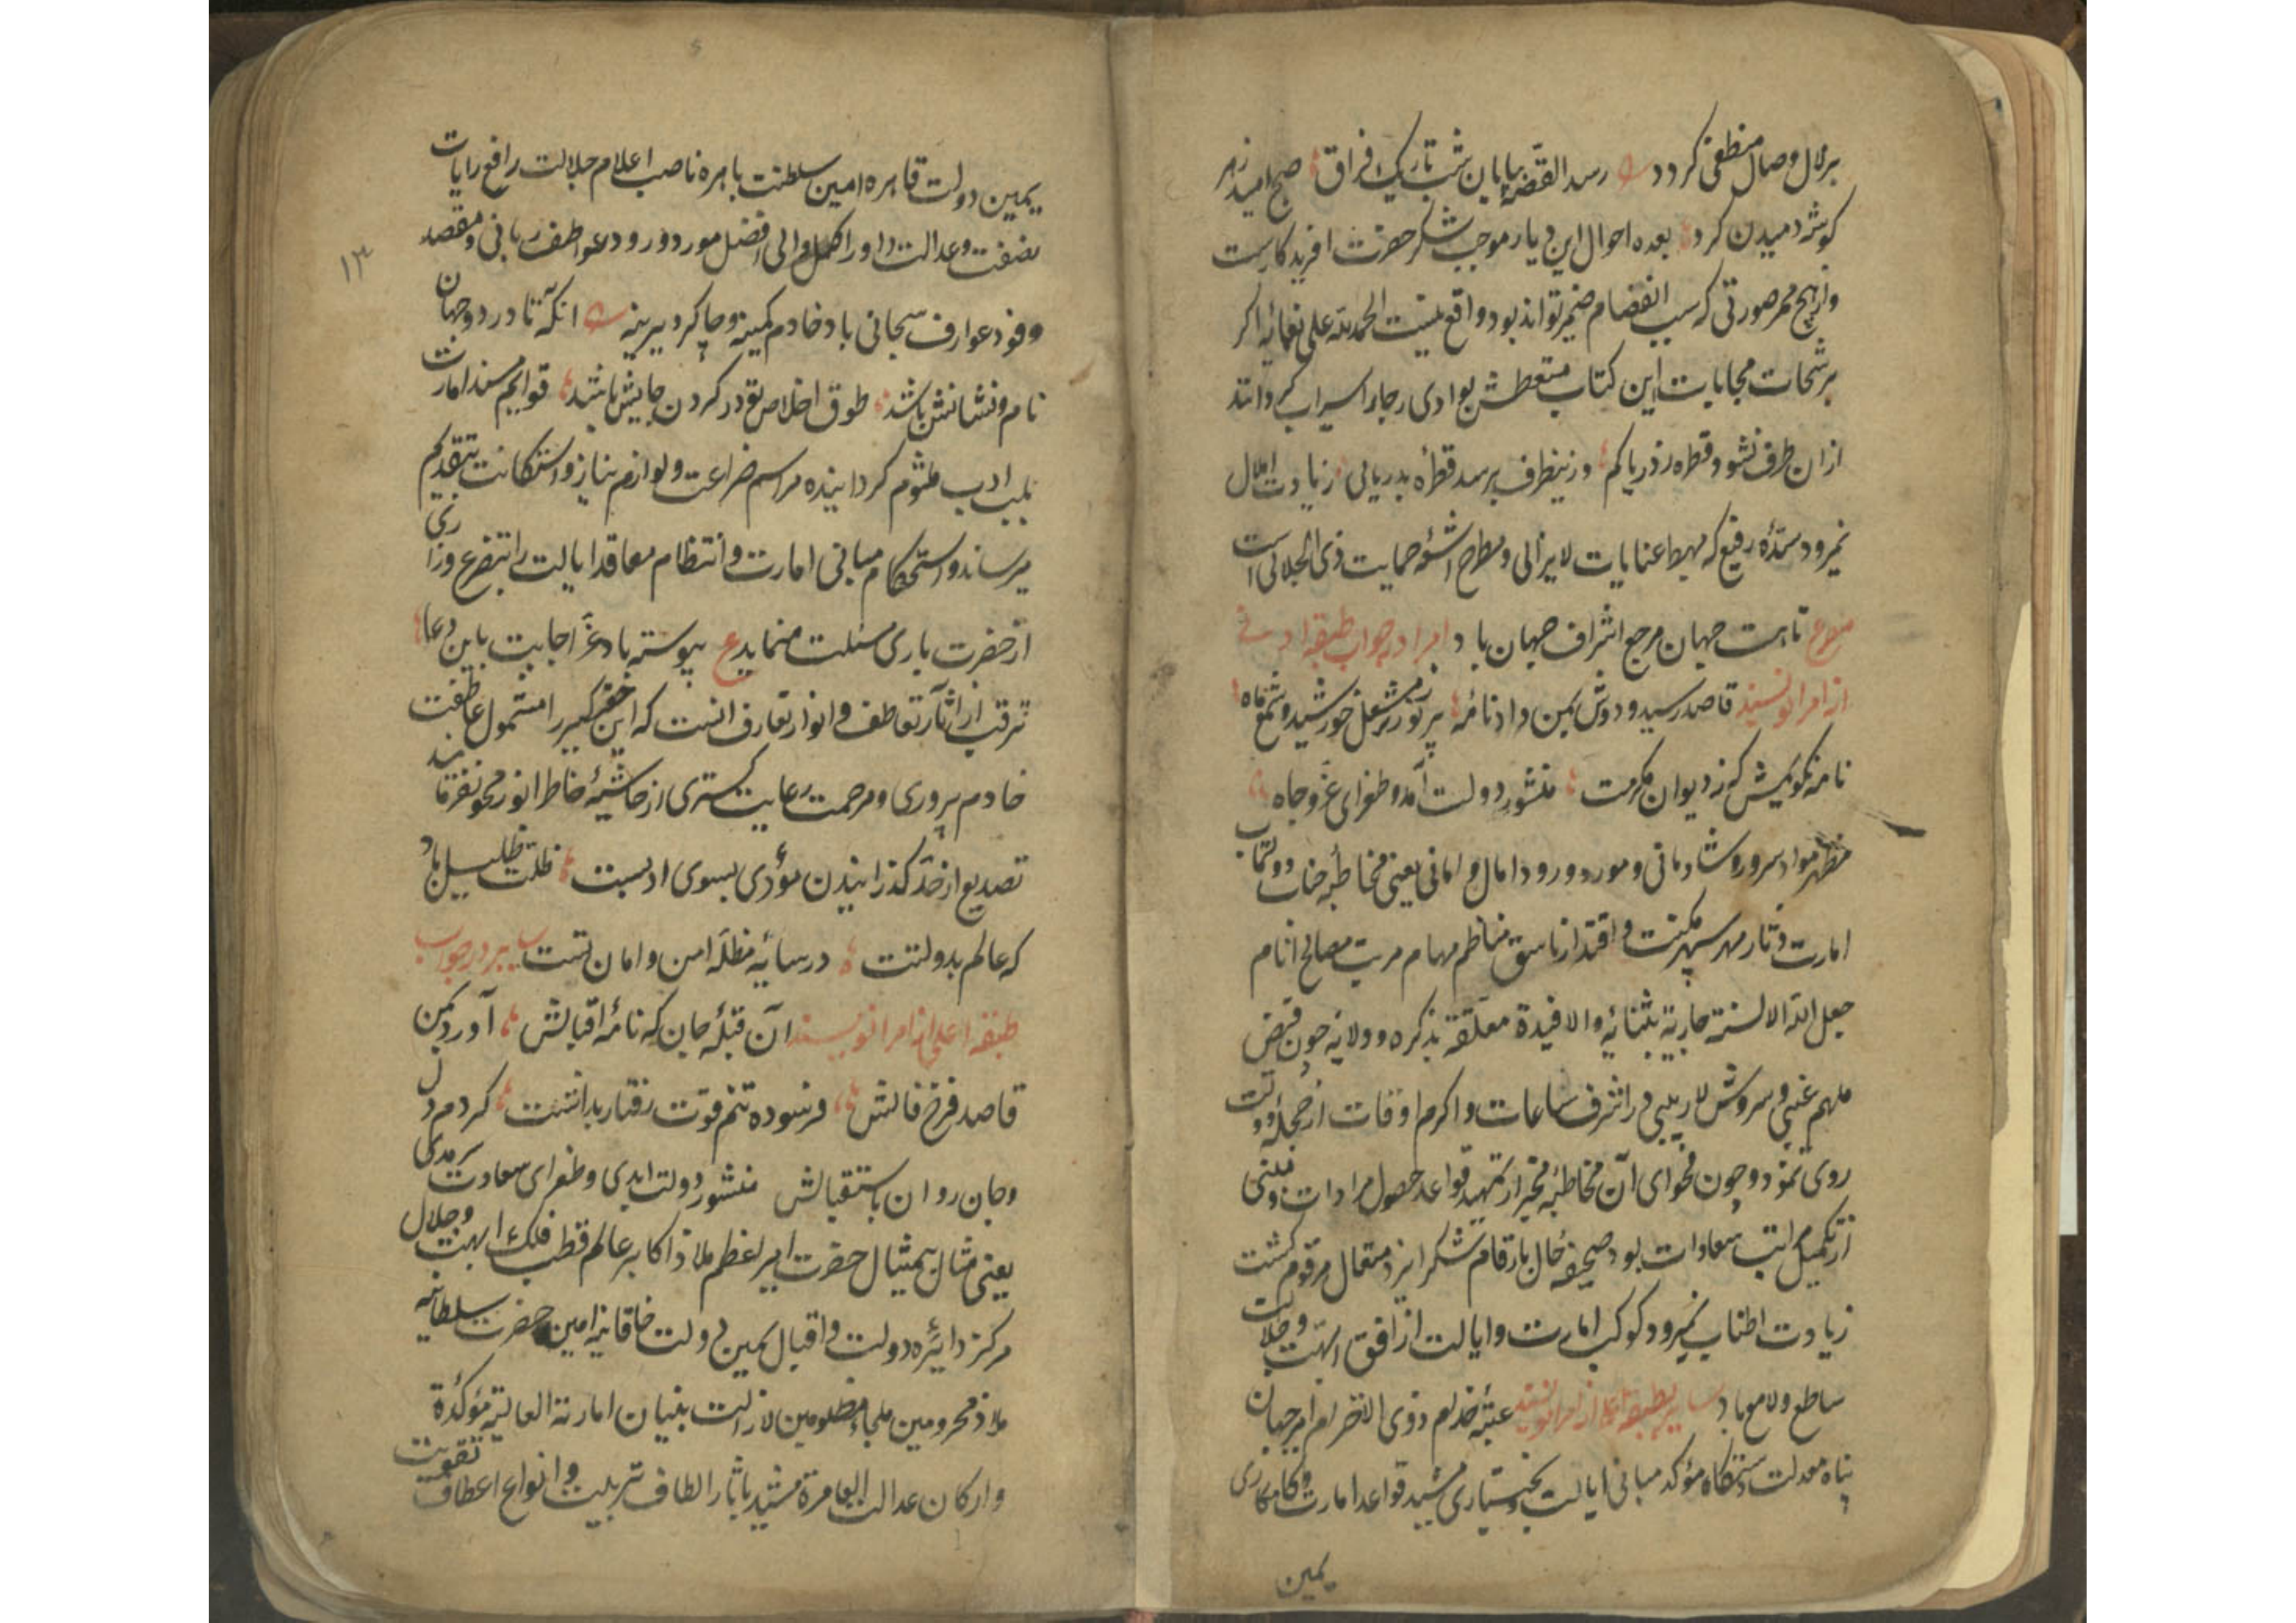 بزلال وصال منطفی کردد رسد القصه بپایان شب تاریک فراق صبح امید زهر
کوشه دمیدن کرد بعده احوال این دیار موجب شکر حضرت افریدکارست
واز هیچ ممر صورتی که سبب انفصام ضمیر تواند بود واقع نیست الحمدلله علی نعمائه اکر
برشحات مجابات این کتاب متعطش بوادی رجا را سیراب کردانند
ازان طرف نشود قطره ز دریا کم وزینطرف برسد قطرهٔ بدریائی زیادت املال
نمیرود سدهٔ رفیع که مهبط عنایات لایزالی ومطرح اشعهٔ حمایت ذی الجلالی است
مصرع تا هست جهان مرجع اشراف جهان باد امرا در جواب طبقه ادنی
از امرا نویسند قاصد رسید ودوش بمن داد نامهٔ پر نورتر ز مشعل خورشید وشمع ماه
نامه نکویمش که ز دیوان مکرمت منشور دولت آمد وطغرای عز وجاه
مظهر مواد سرور وشادمانی ومورد ورود امال وامانی یعنی مخاطبهٔ جناب دولتماب
امارت دثار مهر سپهر مکنت واقتدار ناسق مناظم مهام مرتب مصالح انام
جعل الله الالسنة جاریة بثنائه والافیدة معلقة بذکره وولائه چون فیض
ملهم غیبی وسروش لاریبی در اشرف ساعات واکرم اوقات از حجلهٔ دولت
روی نمود وچون فحوای آن مخاطبه مخبر از تمهید قواعد حصول مرادات ومنبی
از تکمیل مراتب سعادات بود صحیفه حال بارقام شکر ایزد متعال مرقوم کشت
زیادت اطناب نمیرود کوکب امارت وایالت از افق ابهت وجلالت
ساطع ولامع باد طبقه اعلی از امرا نویسند عتبهٔ خدام ذوی الاحترام امیر جهان
پناه معدلت دستکاه مؤکد مبانی ایالت وبختیاری مشید قواعد امارت وکامکاری
یمین
۱۳
یمین دولت قاهره امین سلطنت باهره ناصب اعلام جلالت رافع رایات
نصفت وعدالت داور اکمل والی افضل مورد ورود عواطف ربانی ومقصد
وفود عوارف سبحانی باد خادم کمینه وچاکر دیرینه انکه تا در دو جهان
نام ونشانش باشد طوق اخلاص تو در کردن جانش باشد قوایم مسند امارت
بلب ادب ملثوم کردانیده مراسم ضراعت ولوازم نیاز واستکانت بتقدیم
میرساند واستحکام مبانی امارت وانتظام معاقد ایالت را بتضرع وزاری
از حضرت باری مسئلت مینماید ع پیوسته باد عز اجابت باین دعا
ترقب از اثار تعاطف وانوار تعارف انست که این حقیر کبیر را مشمول عاطفت
خادم پروری ومرحمت رعایت کستری از حاشیهٔ خاطر انور محو نفرمایند
تصدیع از حد کذرانیدن مؤدی بسوی ادبست ظلت ظلیل باد
که عالم بدولتت در سایهٔ مظله امن وامان تست در جواب
طبقه اعلی از امرا نویسند آن قبلهٔ جان که نامهٔ اقبالش آورد بمن
قاصد فرخ فالش فرسوده تنم قوت رفتار نداشت کردم دل
وجان روان باستقبالش منشور دولت ابدی وطغرای سعادت سرمدی
یعنی مثال بیمثال حضرت امیر اعظم ملاذ اکابر عالم قطب فلک ابهت وجلال
مرکز دایرهٔ دولت واقبال یمین دولت خاقانیه امین حضرت سلطانیه
ملاذ محرومین ملجا مظلومین لازالت بنیان امارته العالیة مؤکدة
وارکان عدالته العامرة مشیدة باثار الطاف تربیت وانواع اعطاف تقویت